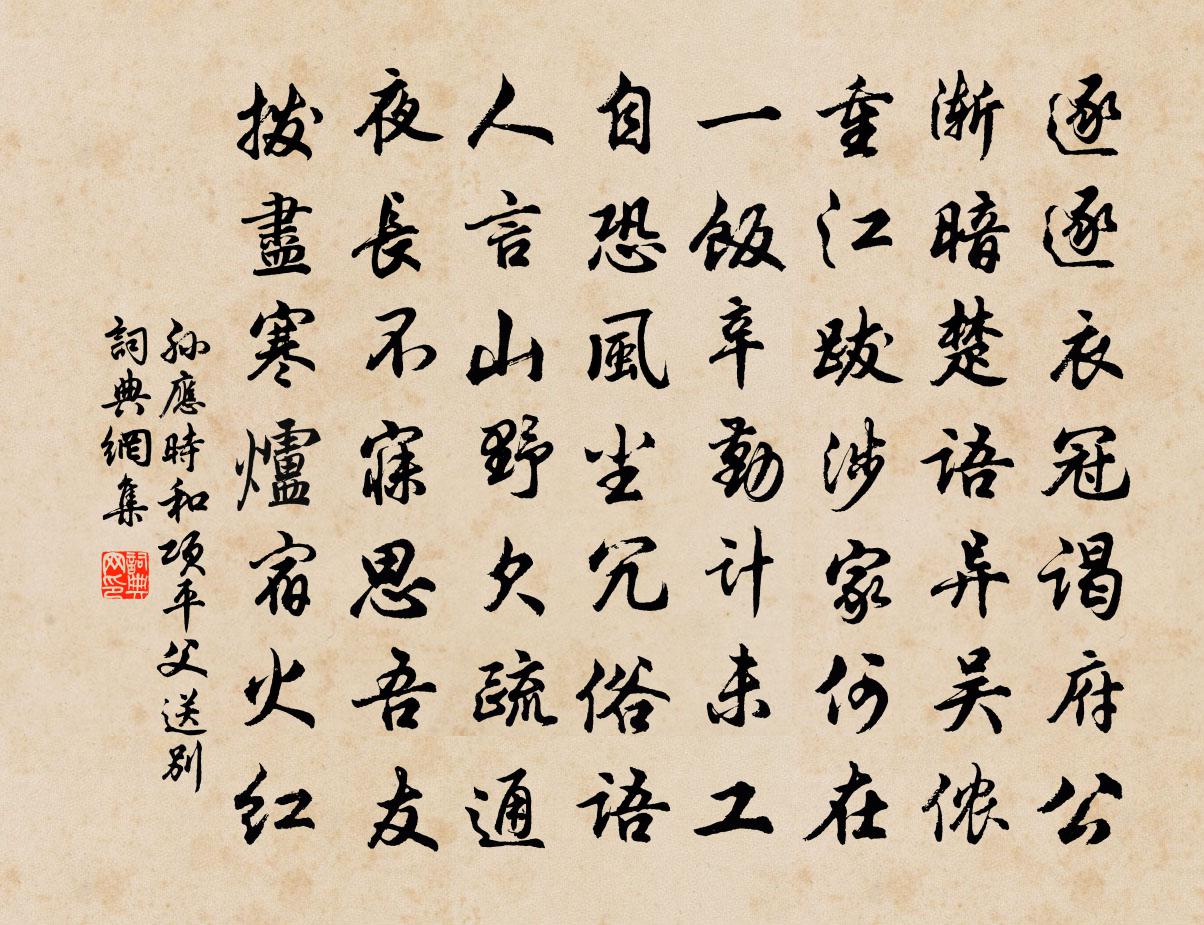 逐逐衣冠谒府公
渐暗楚语异吴侬
重江跋涉家何在
一饭辛勤计未工
自恐風尘冗俗语
人言山野欠疏通
夜長不寐思吾友
拨盡寒爐宿火红
孙應時和项平父送别
詞典網集
詞典网印